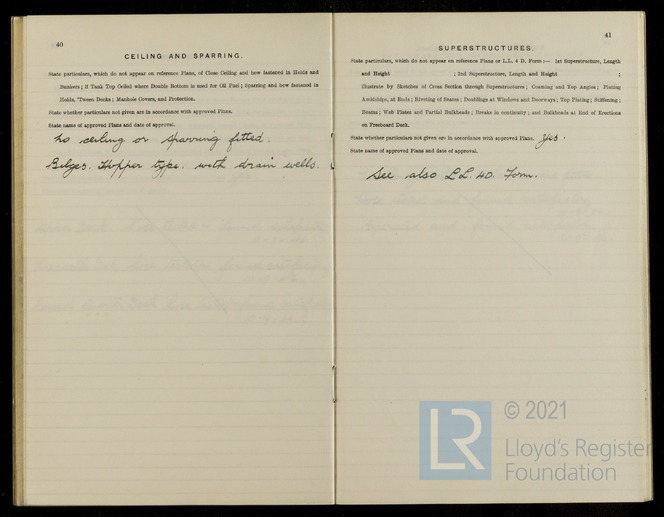 40
CEILING AND SPARRING.
State particulars, which do not appear on reference Plans, of Close Ceiling and how fastened in Holds and
Bunkers ; if Tank Top Ceiled where Double Bottom is used for Oil Fuel ; Sparring and how fastened in
Holds, 'Tween Decks ; Manhole Covers, and Protection.
State whether particulars not given are in accordance with approved Plans.
State name of approved Plans and date of approval.
No ceiling or sparring fitted.
Bilges. Hopper type. with drain wells.
41
SUPERSTRUCTURES.
State particulars, which do not appear on reference Plans or L.L. 4 D. Form :— 1st Superstructure, Length
and Height ; 2nd Superstructure, Length and Height ;
Illustrate by Sketches of Cross Section through Superstructures ; Coaming and Top Angles ; Plating
Amidships, at Ends ; Riveting of Seams ; Doublings at Windows and Doorways ; Top Plating ; Stiffening ;
Beams ; Web Plates and Partial Bulkheads ; Breaks in continuity ; and Bulkheads at End of Erections
on Freeboard Deck.
State whether particulars not given are in accordance with approved Plans. Yes.
State name of approved Plans and date of approval.
See also L.L. 4D. Form.
LR
© 2021
Lloyd's Register
Foundation